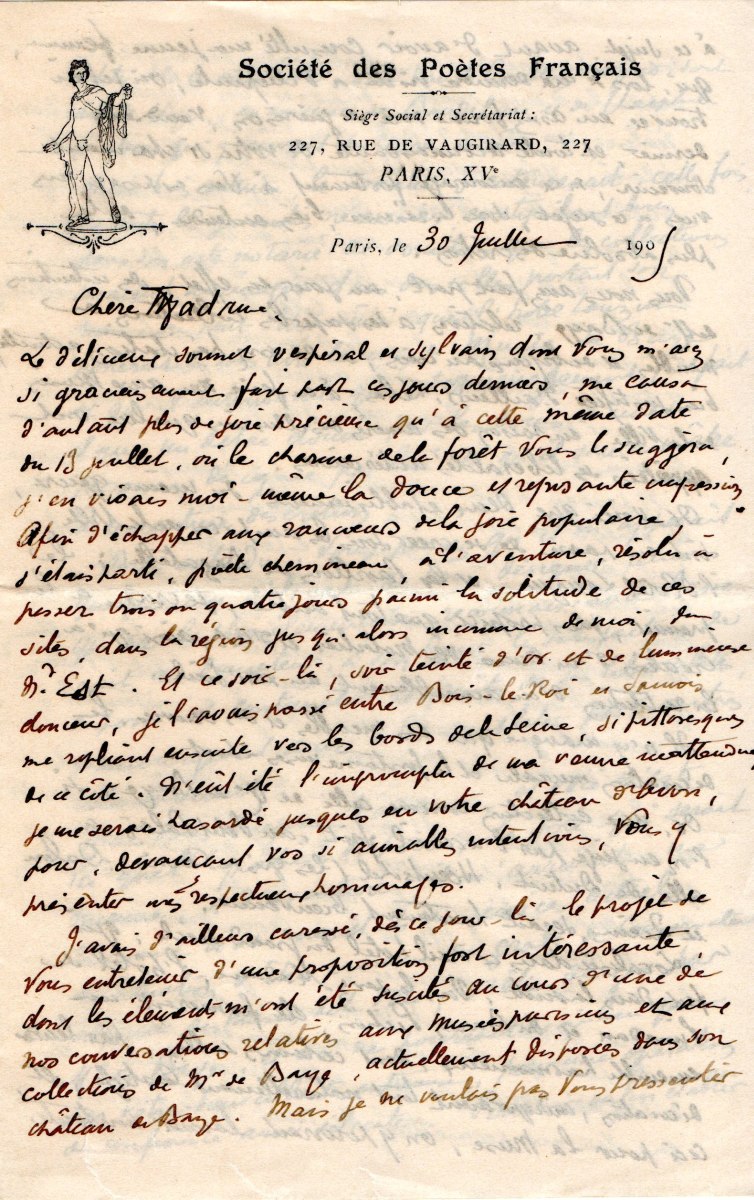 Société des Poètes Français
Siège Social et Secrétariat :
227, RUE DE VAUGIRARD, 227
PARIS, XVe
Paris, le 30 Juillet 1905
Chère Madame,
Le délicieux sonnet vespéral et sylvain dont Vous m'avez
si gracieusement fait part ces jours derniers, me causa
d'autant plus de joie précieuse qu'à cette même date
du 13 juillet, où le charme de la forêt Vous le suggéra,
j'en vivais moi-même la douce et reposante impression.
Afin d'échapper aux rancœurs de la joie populaire,
j'étais parti, poète chemineau, à l'aventure, résolu à
passer trois ou quatre jours parmi la solitude de ces
sites, dans la région jusqu'alors inconnue de moi, du
Nrd Est. Et ce soir-là, soir teinté d'or et de lumineuse
douceur, je l'avais passé entre Bois-le-Roi et Samois,
me repliant ensuite vers les bords de la Seine, si pittoresques
de ce côté. N'eût été l'impromptu de ma venue inattendue,
je me serais hasardé jusques en votre château
pour, devançant vos si aimables intentions, Vous y
présenter mes respectueux hommages.
J'avais d'ailleurs caressé, dès ce jour-là, le projet de
Vous entretenir d'une proposition fort intéressante
dont les éléments m'ont été suscités au cours d'une de
nos conversations relatives aux musées parisiens et aux
collections de Mr de Baye, actuellement disposées dans son
château de Baye. Mais je ne voulais pas Vous pressentir